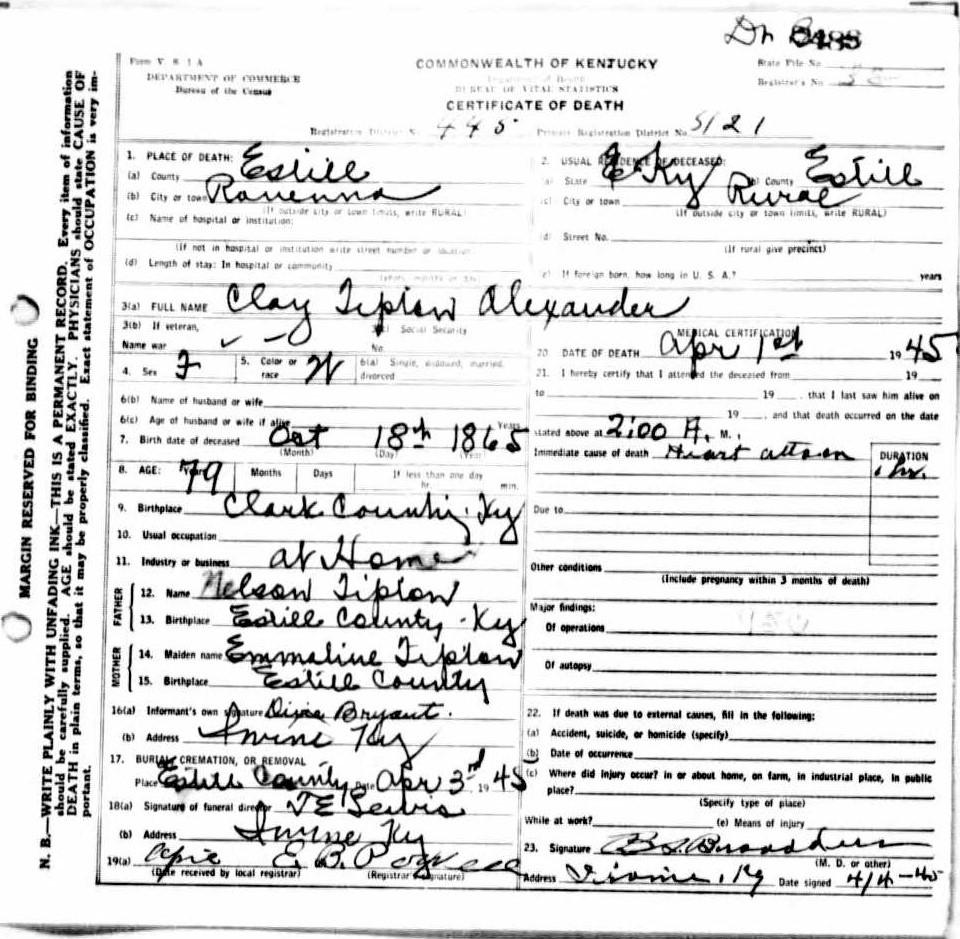 Dr B
Form V. S. 1 A
COMMONWEALTH OF KENTUCKY
State File No.
DEPARTMENT OF COMMERCE
Department of Health
Registrar's No.
Bureau of the Census
BUREAU OF VITAL STATISTICS
CERTIFICATE OF DEATH
Registration District No. 445 Primary Registration District No. 5121
1. PLACE OF DEATH:
(a) County Estill
(b) City or town Ravenna
(If outside city or town limits, write RURAL)
(c) Name of hospital or institution:
(If not in hospital or institution write street number or location)
(d) Length of stay: In hospital or community
(years, months or days)
2. USUAL RESIDENCE OF DECEASED:
(a) State Ky (b) County Estill
(c) City or town Rural
(If outside city or town limits, write RURAL)
(d) Street No.
(If rural give precinct)
(e) If foreign born, how long in U. S. A.? years
3(a) FULL NAME Clay Tipton Alexander
3(b) If veteran,
Name war
3(c) Social Security
No.
4. Sex F
5. Color or race W
6(a) Single, widowed, married, divorced
6(b) Name of husband or wife
6(c) Age of husband or wife if alive Years
7. Birth date of deceased Oct 18th 1865
(Month) (Day) (Year)
8. AGE: Years 79 Months Days If less than one day
hr. min.
9. Birthplace Clark County, Ky
10. Usual occupation
11. Industry or business at Home
FATHER
12. Name Nelson Tipton
13. Birthplace Estill County Ky
MOTHER
14. Maiden name Emmaline Tipton
15. Birthplace Estill County
16(a) Informant's own signature Dixie Bryant.
(b) Address Irvine Ky
17. BURIAL, CREMATION, OR REMOVAL
Place Estill County Date Apr 3rd 1945
18(a) Signature of funeral director J E Lewis
(b) Address Irvine Ky
19(a)
(Date received by local registrar) (Registrar's signature)
MEDICAL CERTIFICATION
20 DATE OF DEATH Apr 1st 1945
21. I hereby certify that I attended the deceased from 19
to 19 , that I last saw him alive on
19 , and that death occurred on the date
stated above at 2:00 A. M.,
Immediate cause of death Heart
DURATION
1 hr.
Due to
Other conditions
(Include pregnancy within 3 months of death)
Major findings:
Of operations
Of autopsy
22. If death was due to external causes, fill in the following:
(a) Accident, suicide, or homicide (specify)
(b) Date of occurrence
(c) Where did injury occur? in or about home, on farm, in industrial place, in public
place?
(Specify type of place)
While at work? (e) Means of injury
23. Signature
(M. D. or other)
Address Irvine, Ky Date signed 4/4-45
MARGIN RESERVED FOR BINDING
N. B.—WRITE PLAINLY WITH UNFADING INK—THIS IS A PERMANENT RECORD. Every item of information
should be carefully supplied. AGE should be stated EXACTLY. PHYSICIANS should state CAUSE OF
DEATH in plain terms, so that it may be properly classified. Exact statement of OCCUPATION is very im-
portant.